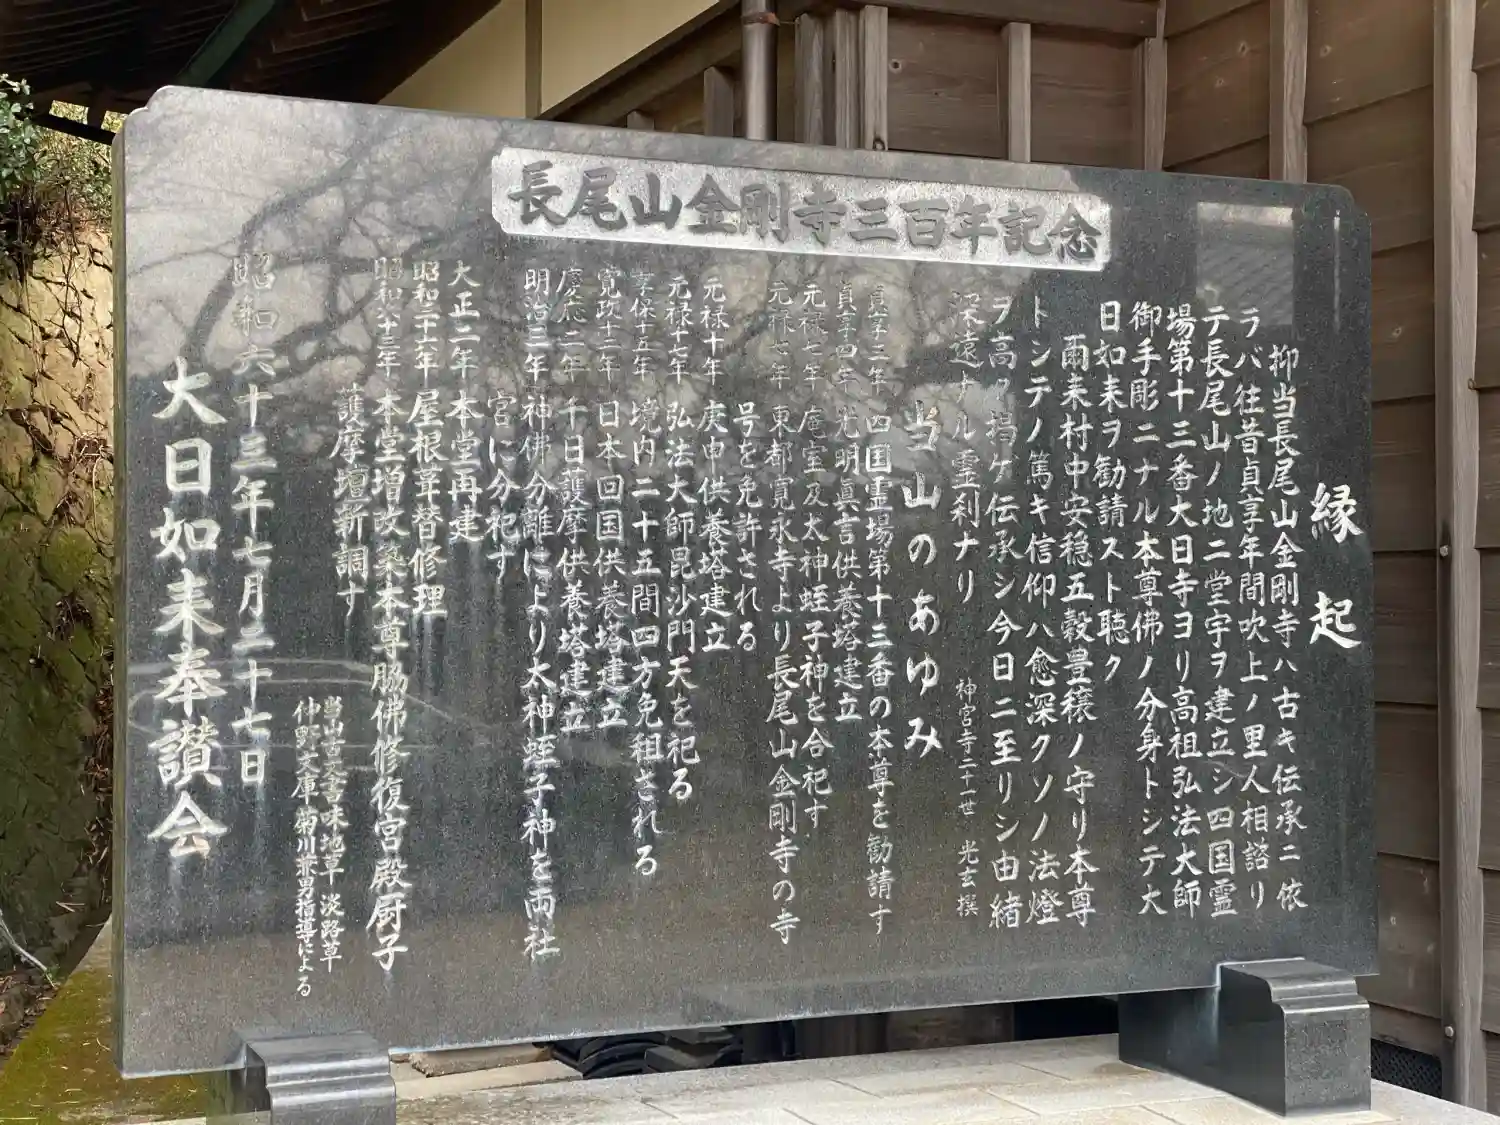 長尾山金剛寺三百年記念
縁起
抑当長尾山金剛寺ハ古キ伝承ニ依
ラバ往昔貞享年間吹上ノ里人相諮リ
テ長尾山ノ地ニ堂宇ヲ建立シ四国霊
場第十三番大日寺ヨリ高祖弘法大師
御手彫ニナル本尊佛ノ分身トシテ大
日如来ヲ勧請スト聴ク
爾来村中安穏五穀豊穣ノ守リ本尊
トシテノ篤キ信仰ハ愈深クソノ法燈
ヲ高ク掲ゲ伝承シ今日ニ至リシ由緒
深遠ナル霊刹ナリ
神宮寺二十一世 光玄撰
当山のあゆみ
貞享二年 四国霊場第十三番の本尊を勧請す
貞享四年 光明眞言供養塔建立
元禄七年 庵室及太神蛭子神を合祀す
元禄七年 東都寛永寺より長尾山金剛寺の寺
号を免許される
元禄十年 庚申供養塔建立
元禄十七年 弘法大師昆沙門天を祀る
享保十五年 境内二十五間四方免租される
寛政十二年 日本回国供養塔建立
慶応二年 千日護摩供養塔建立
明治三年 神佛分離により太神蛭子神を両社
宮に分祀す
大正二年 本堂再建
昭和三十六年 屋根葺替修理
昭和六十三年 本堂増改築本尊脇佛修復宮殿厨子
護摩壇新調す
当山古文書味地草 淡路草
仲野文庫 菊川兼男指導による
昭和六十三年七月二十七日
大日如来奉讃会